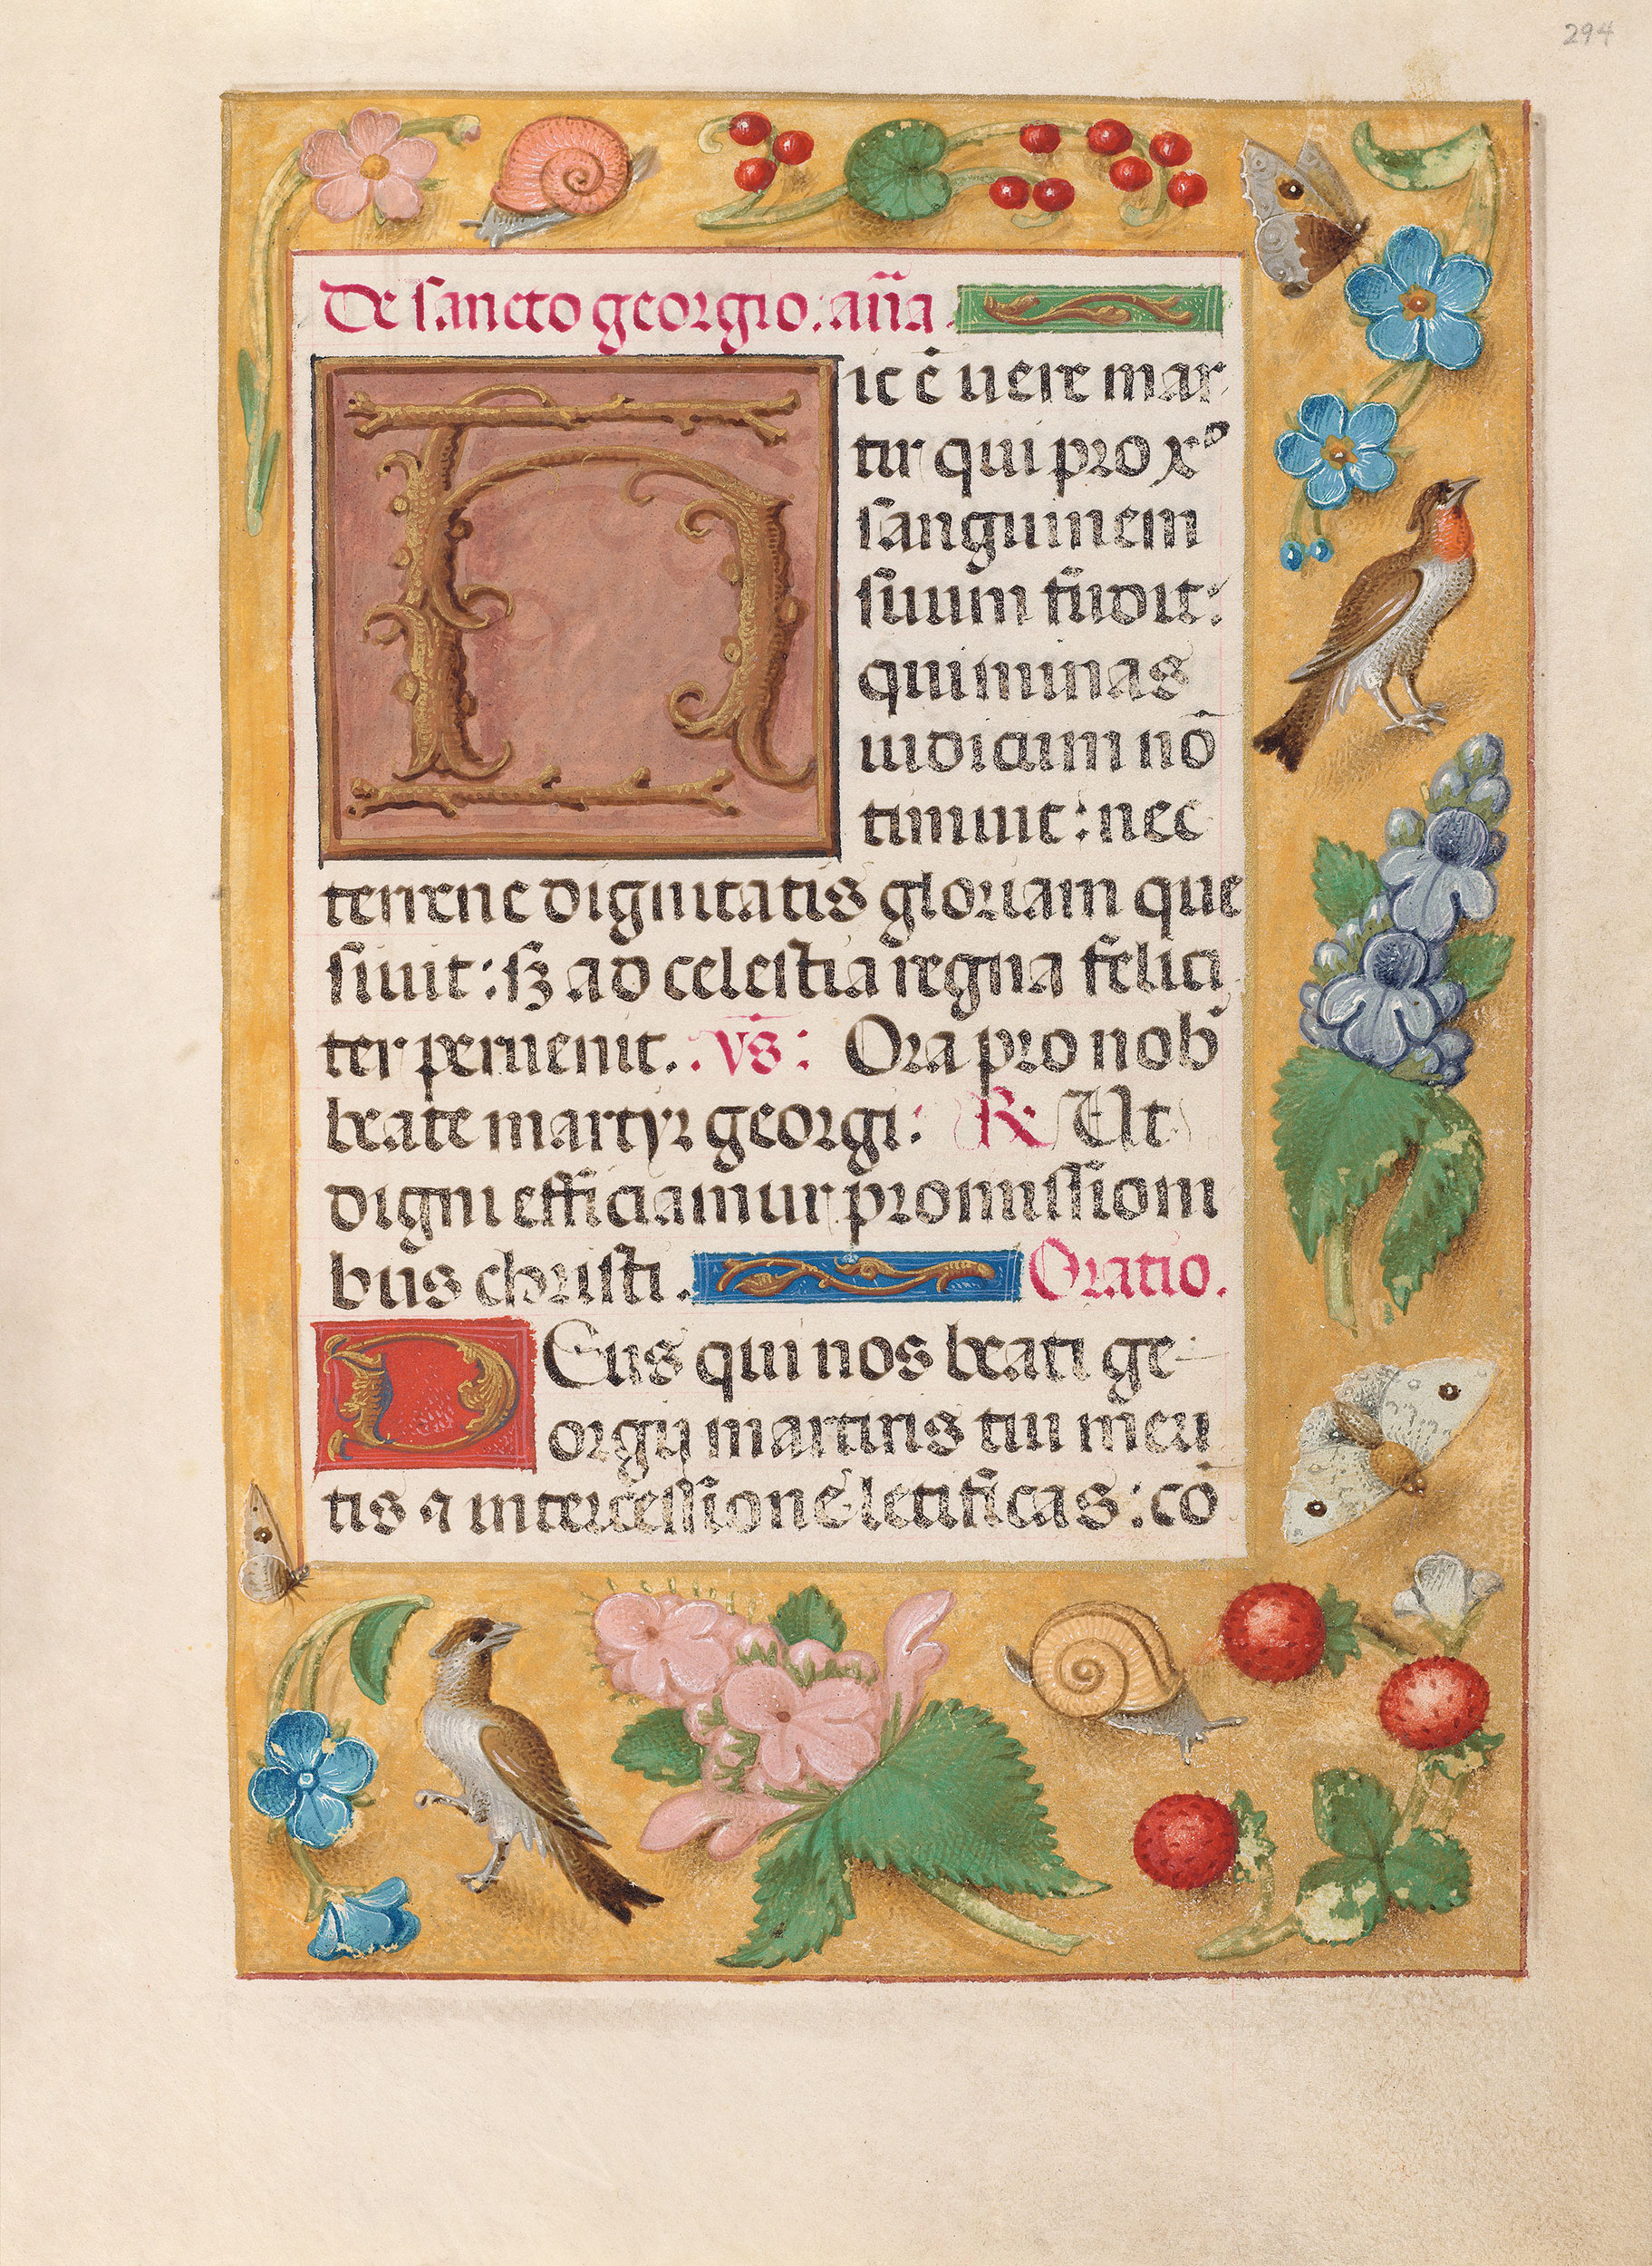 294
De sancto georgio. an̄a.
Hic ē uere mar
tir qui pro xº
sanguinem
suum fudit:
qui minas
iudicum nō
timuit: nec
terrene dignitatis gloriam que
siuit: sꝫ ad celestia regna felici
ter peruenit. Vs̄: Ora pro nob̄
beate martyr georgi: R: Ut
digni efficiamur promissioni
bus christi. Oratio.
DEus qui nos beati ge-
orgij martiris tui meri
tis ⁊ intercessione letificas: cō